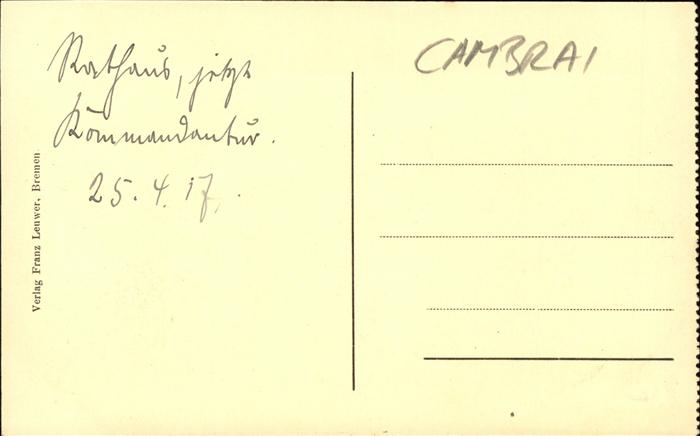 Rathaus, jetzt
Kommandantur.
25. 4. 17.
CAMBRAI
Verlag Franz Leuwer, Bremen